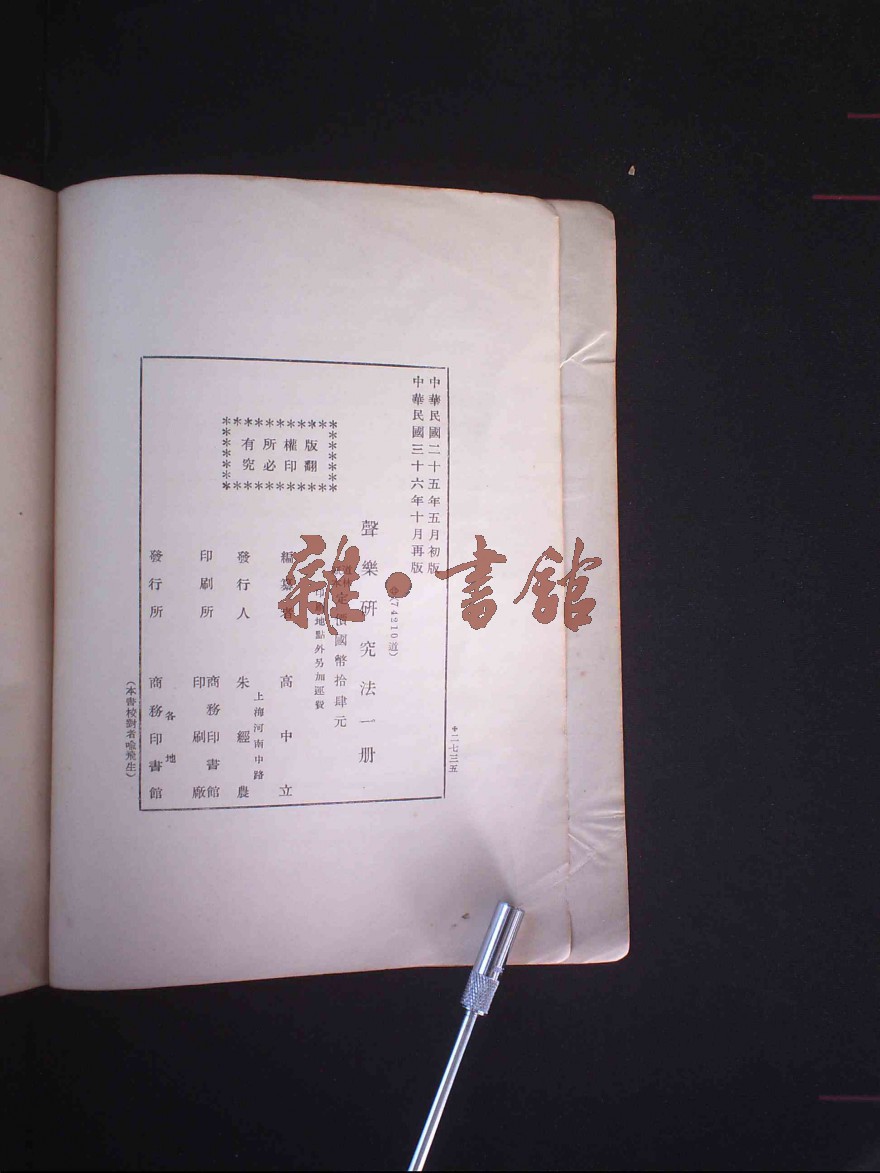 中華民國二十五年五月初版
中華民國三十六年十月再版
＊二七三五
(74210道)
聲樂研究法一册
定價國幣拾肆元
印刷地點外另加運費
版權所有
翻印必究
編纂者 高中立
上海河南中路
發行人 朱經農
印刷所 商務印書館印刷廠
各地
發行所 商務印書館
(本書校對者喩飛生)
雜·書館